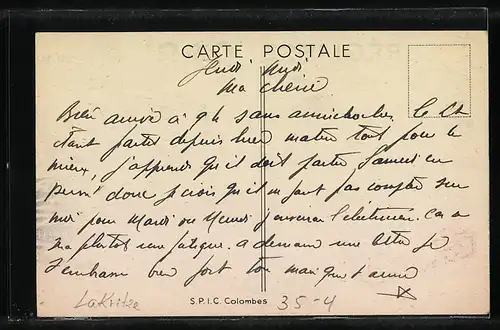 CARTE POSTALE
Jeudi, Midi
Ma chérie
Bien arrivé à 9 h sans anicroches. Le Lt
étant parti depuis hier matin tout pour le
mieux, j'apprends qu'il doit partir Samedi en
perm' donc je crois qu'il ne faut pas compter sur
moi pour Mardi ou Mercredi
fatigue. a demain une lettre je
t'embrasse bien fort ton mari qui t'aime
LaKritze
S.P.I.C. Colombes
35-4